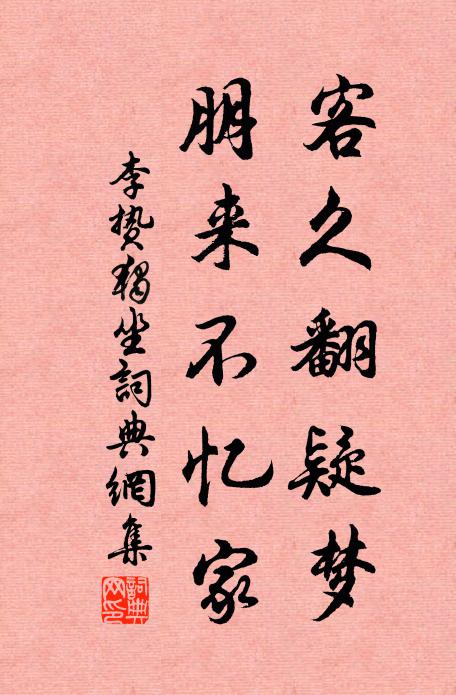 客久翻疑梦
朋来不忆家
李贽独坐詞典網集
詞典網印